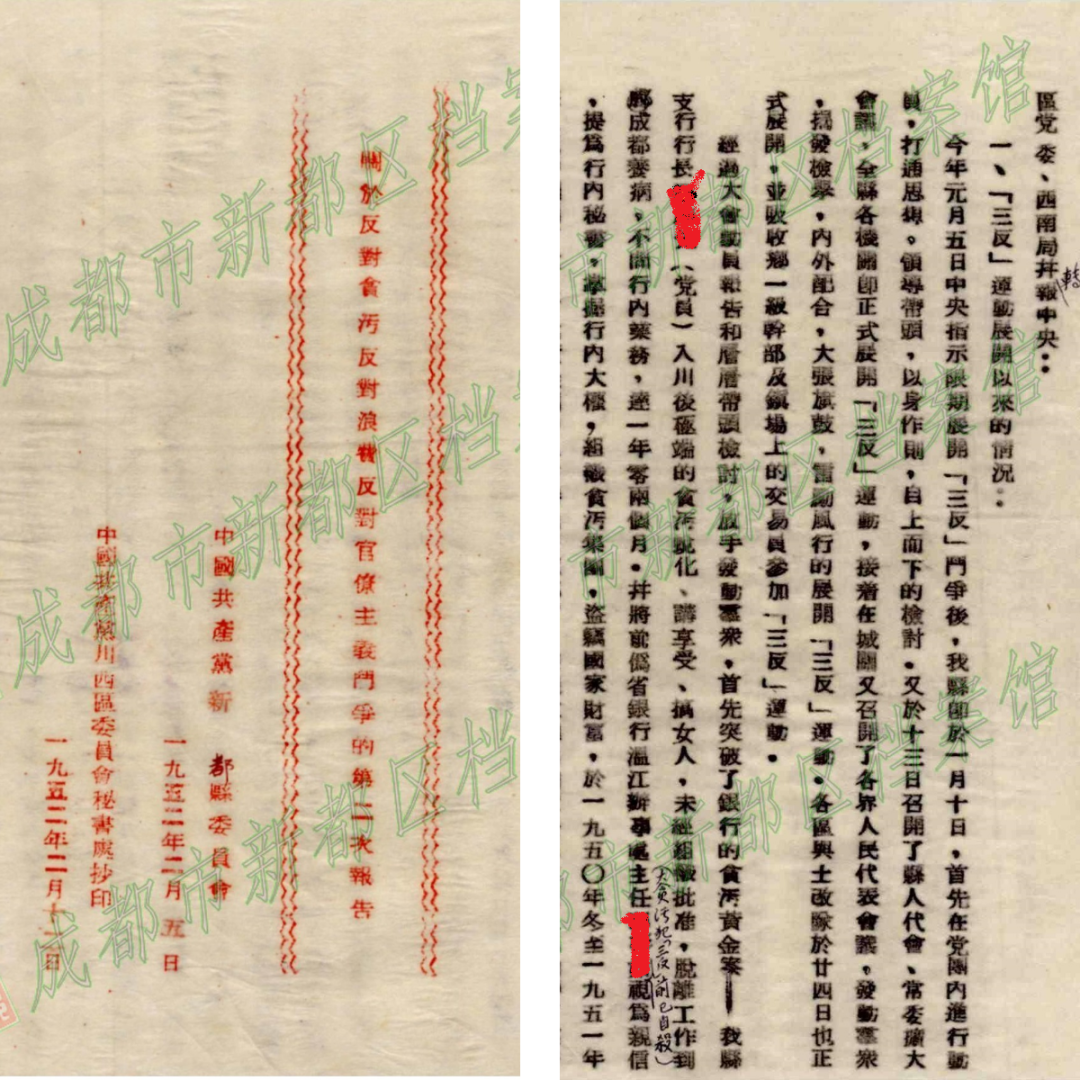 關於反對貪污反對浪費反對官僚主義鬥爭的第二次報告
中國共產黨新都縣委員會
一九五二年二月五日
中國共產黨川西區委員會秘書處抄印
一九五二年二月十二日
區党委、西南局幷報中央：
轉
一、「三反」運動展開以來的情況：
今年元月五日中央指示限期展開「三反」鬥爭後，我縣卽於一月十日，首先在党團內進行動
員，打通思想。領導帶頭，以身作則，自上而下的檢討。又於十三日召開了縣人代會、常委擴大
會議，全縣各機關卽正式展開「三反」運動，接着在城關又召開了各界人民代表會義，發動羣衆
，揭發檢舉，內外配合，大張旗鼓，雷勵風行的展開「三反」運動。各區與土改隊於廿四日也正
式展開，並吸收鄉一級幹部及鎮場上的交易員參加「三反」運動。
經過大會動員報告和層層帶頭檢討，放手發動羣衆，首先突破了銀行的貪污黃金案——我縣
支行行長（党員）入川後極端的貪污脫化、講享受、搞女人，未經組織批准，脫離工作到
成都養病，不問行內業務，達一年零兩個月。幷將前僞省銀行溫江辦事處主任視爲親信
（大貪污犯三反前已自殺）
，提爲行內秘書，掌握行內大權，組織貪污集團，盜竊國家財富，於一九五〇年冬至一九五一年
成都市新都区档案馆
成都市新都区档案馆
成都市新都区档案馆
成都市新都区档案馆
成都市新都区档案馆
成都市新都区档案馆